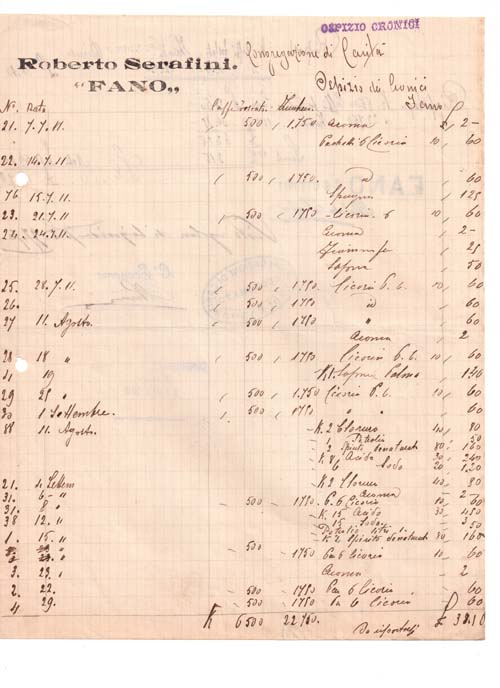 OSPIZIO CRONICI
Roberto Serafini.
"FANO"
Congregazione di Carità
Ospizio di Cronici
Fano
N. Data Caffè Zucchero £
21. 7.7.11. 500 1,750 Aroma 2, 2-
Pacchetti 6 Cicoria 10, 60
22. 14.7.11. 500 1750 id 60
76 15.7.11. Spugna 1 25
23. 21.7.11 500 1750 Cicoria 6 10, 60
24. 24.7.11. Aroma 2-
25
Safona 50
25. 28.7.11. 500 1,750. Cicoria P. 6. 10, 60
26. 500 1750 id 60
27 11. Agosto. 500 1750 " 60
Aroma 2
28 18 " 500 1750 Cicoria P. 6. 10, 60
19 K1. Safona Palma 1 40
29 25 " 500 1.750 Cicoria P. 6. 10, 60
30 1 Settembre. 500 1750 " " 60
88 11. Agosto. K. 2 Cloruro 40, 80
1 Petrolio 50
2 Spirito denaturat 80, 160
K 8 Acido 30, 240
6 Soda 20, 120
21. 4 Settem K 2 Cloruro 40, 80
31. 6 - " Aroma 2-
31. 8 " 500 1750. P. 6 Cicoria 10, 60
38 12. " K. 15 Acido 30, 450
15 Soda 3
Petrolio litri 1. 50
1. 15. " K 2 Spirito denaturat 80, 160
500 1750 Pa 6 Cicoria 10, 60
3. 23. " Aroma 2
2 22. 500 1750 Pa 6 Cicoria 60
4 29. 500 1750 Pa 6 Cicoria 60
K 6500 22750. Da riportarsi £ 38.10